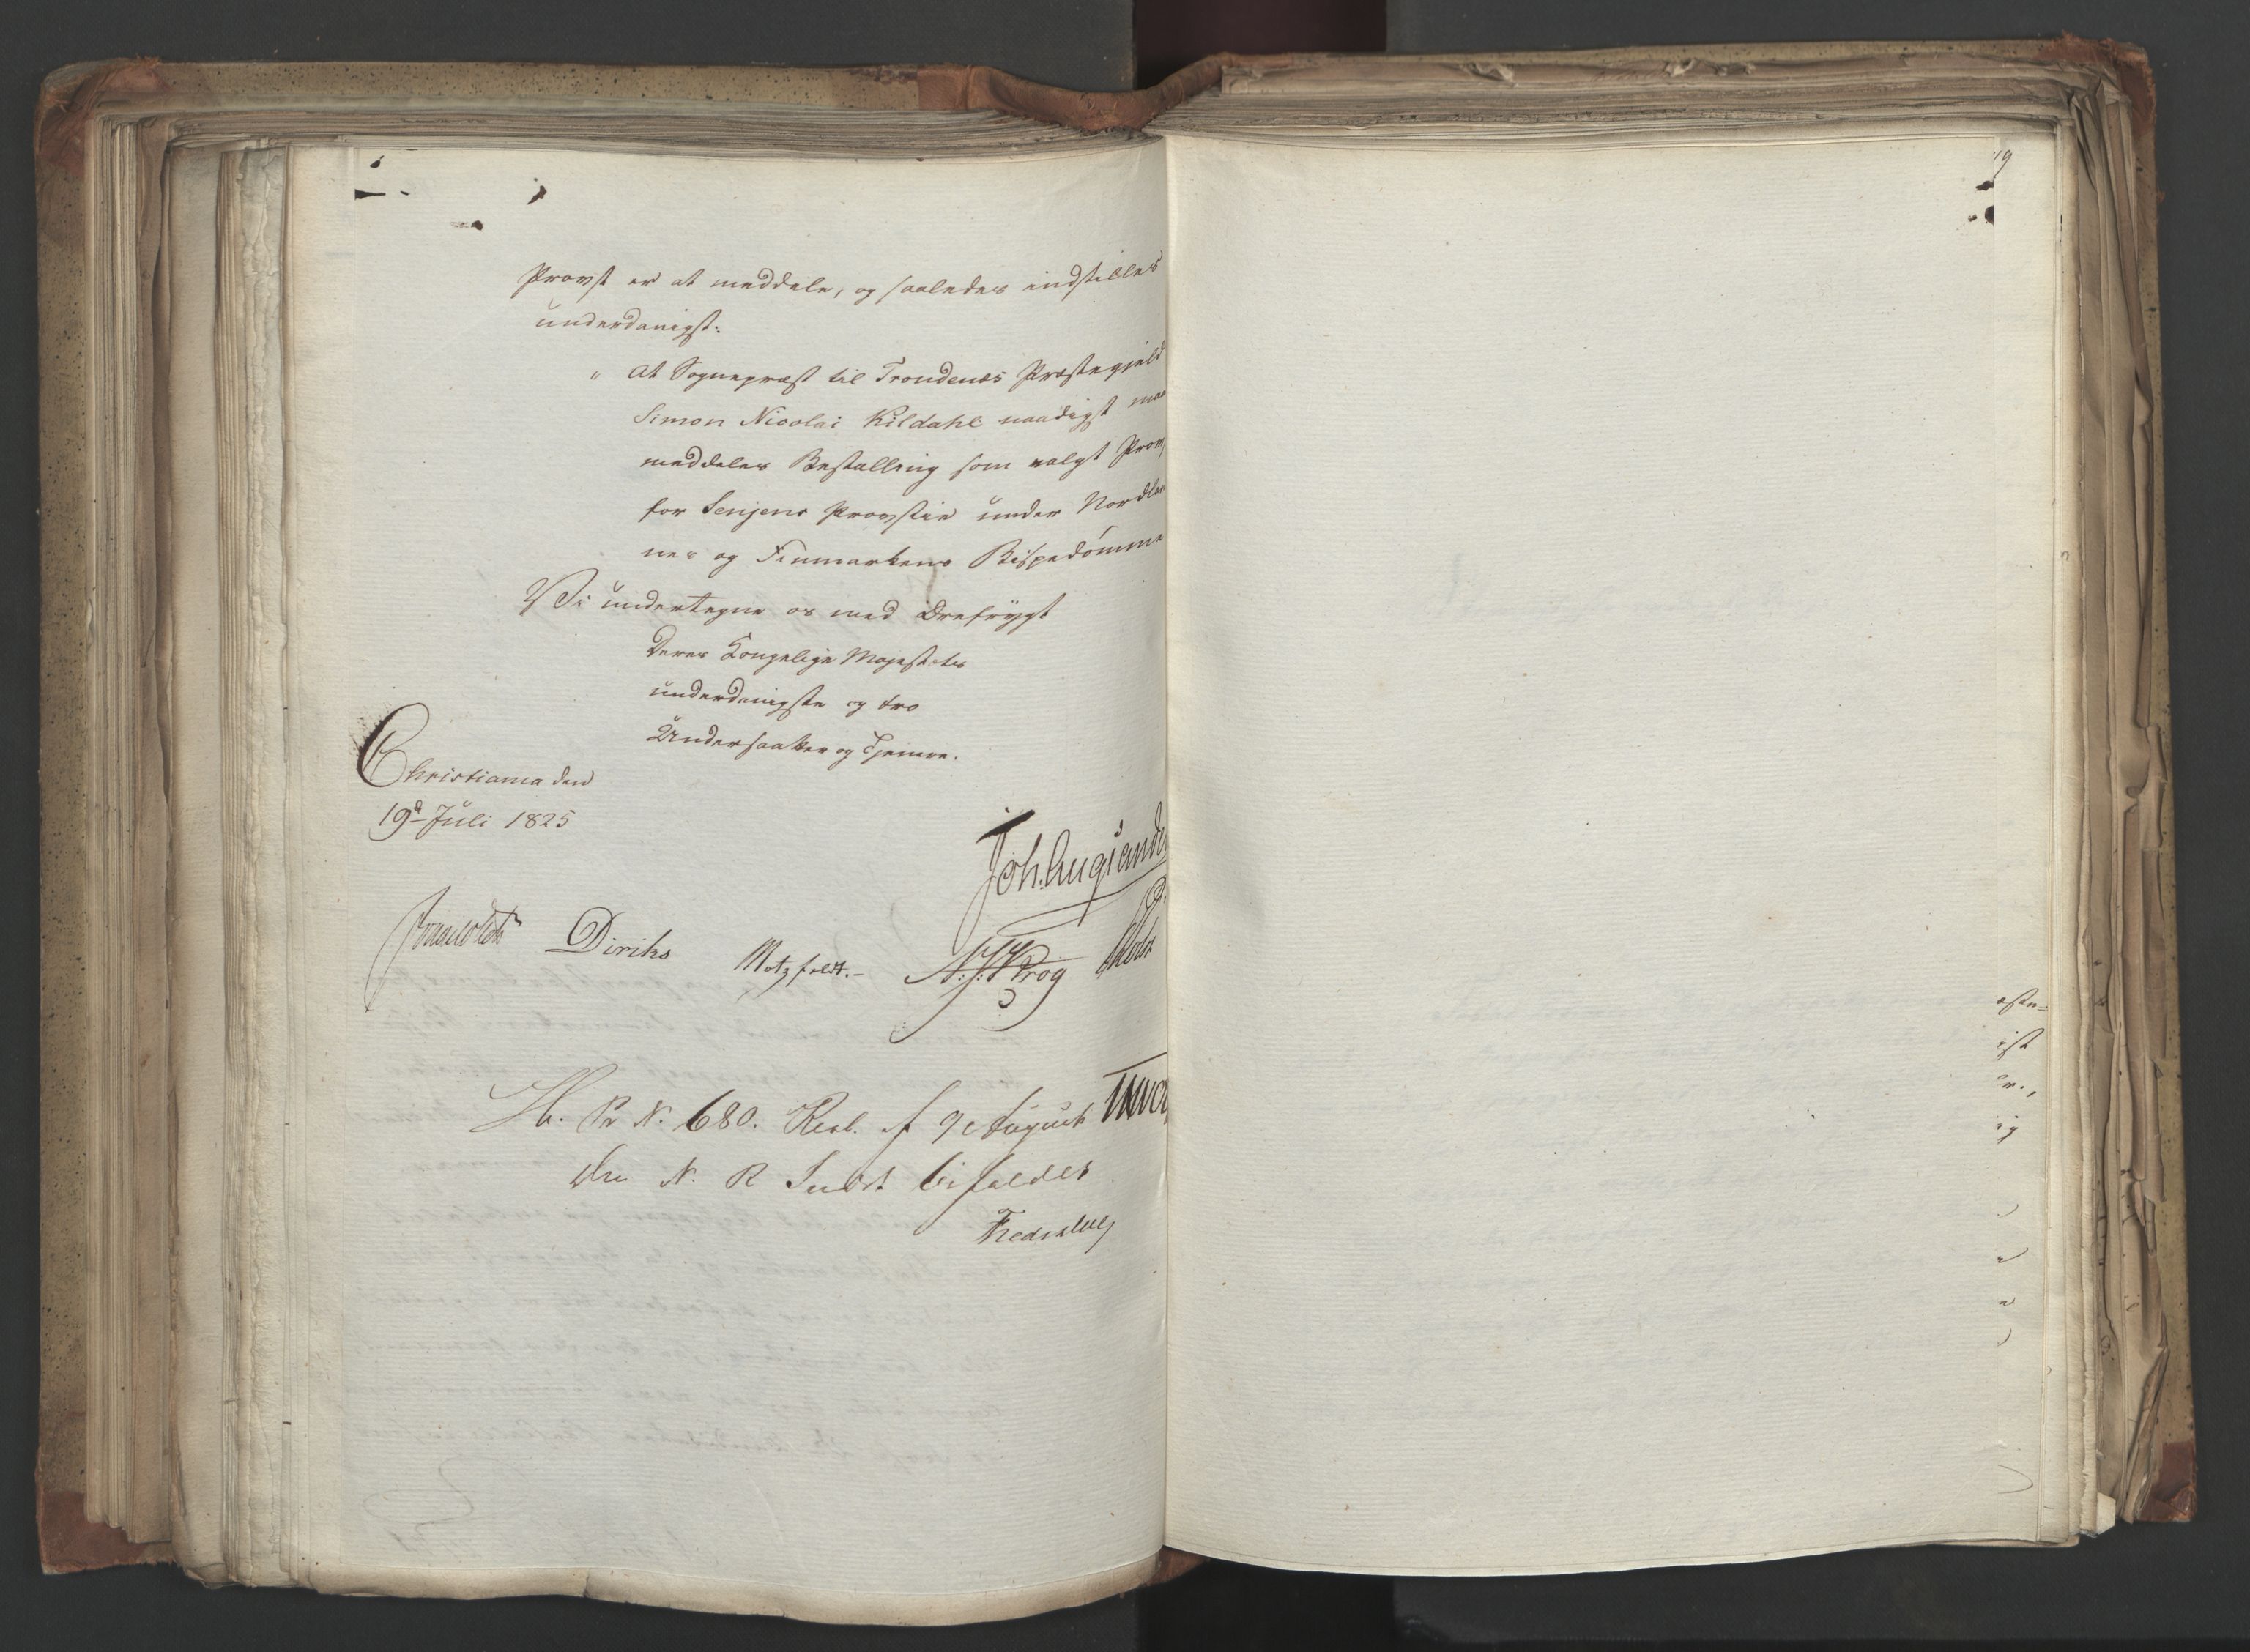 Provst er at meddele, og saaledes indstilles
underdanigst:
" At Sognepræst til Trondenæs Præstegjeld
Simon Nicolai Kildahl naadigst maa
meddeles Bestalling som valgt Provst
for Senjens Provstie under Nordlan
nes og Finmarkens Bispedømme
Vi undertegne os med Ærefrygt
Deres Kongelige Majestæts
underdanigste og tro
Undersaatter og Tjenere.
Christiania den
19d Juli 1825
Joh. Aug. Sande
Diriks Motzfeldt. N: J: Krog Holst
H. R N. 680. Resl. af 9 August
den N. R Indst bifaldes
Fredriksv
19